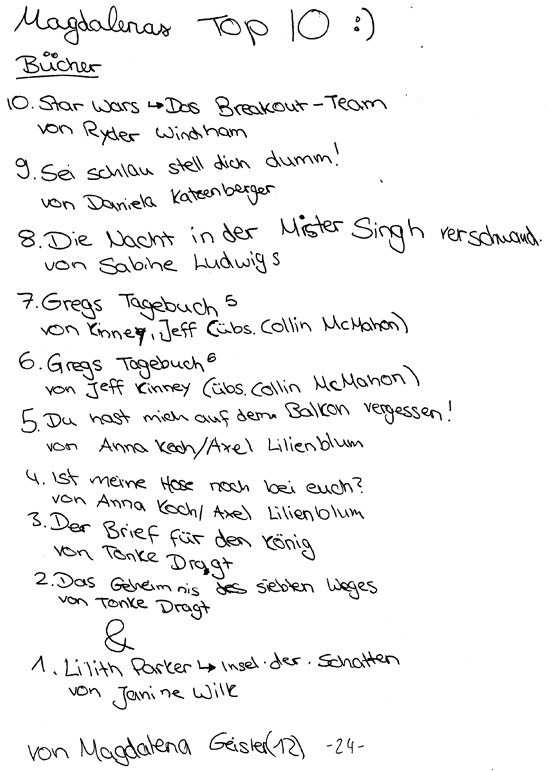 Magdalenas Top 10 :)
Bücher
10. Star Wars ↳ Das Breakout-Team
von Ryder Windham
9. Sei schlau stell dich dumm!
von Daniela Katzenberger
8. Die Nacht in der Mister Singh verschwand.
von Sabine Ludwigs
7. Gregs Tagebuch 5
von Kinney, Jeff (übs. Collin McMahon)
6. Gregs Tagebuch 6
von Jeff Kinney (übs. Collin McMahon)
5. Du hast mich auf dem Balkon vergessen!
von Anna Koch/Axel Lilienblum
4. Ist meine Hose noch bei euch?
von Anna Koch/ Axel Lilienblum
3. Der Brief für den König
von Tonke Dragt
2. Das Geheimnis des siebten Weges
von Tonke Dragt
&
1. Lilith Parker ↳ Insel der Schatten
von Janine Wilk
von Magdalena Geisler (12) -24-